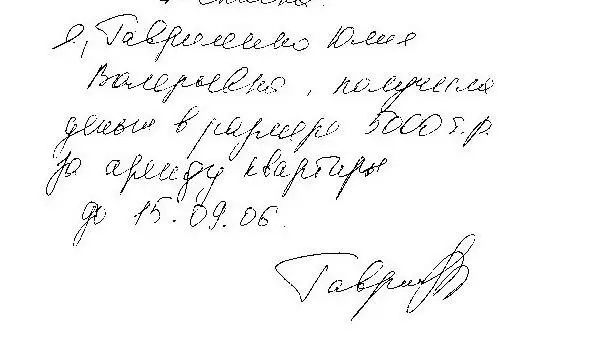 Я, Гавриленко Юлия
Валерьевна, получила
деньги в размере 5000 т.р.
за аренду квартиры
до 15.09.06.